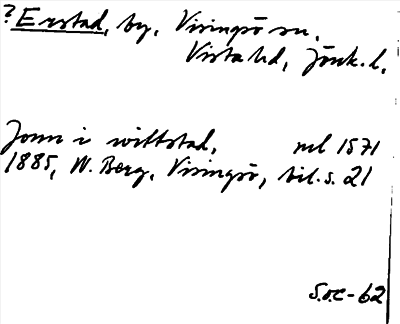 ? Erstad, by, Visingsö sn.
Vista hd, Jönk. l.
Jonn i wittstad, ml 1571
1885, W. Berg, Visingsö, bil. s. 21
S.o.C-62